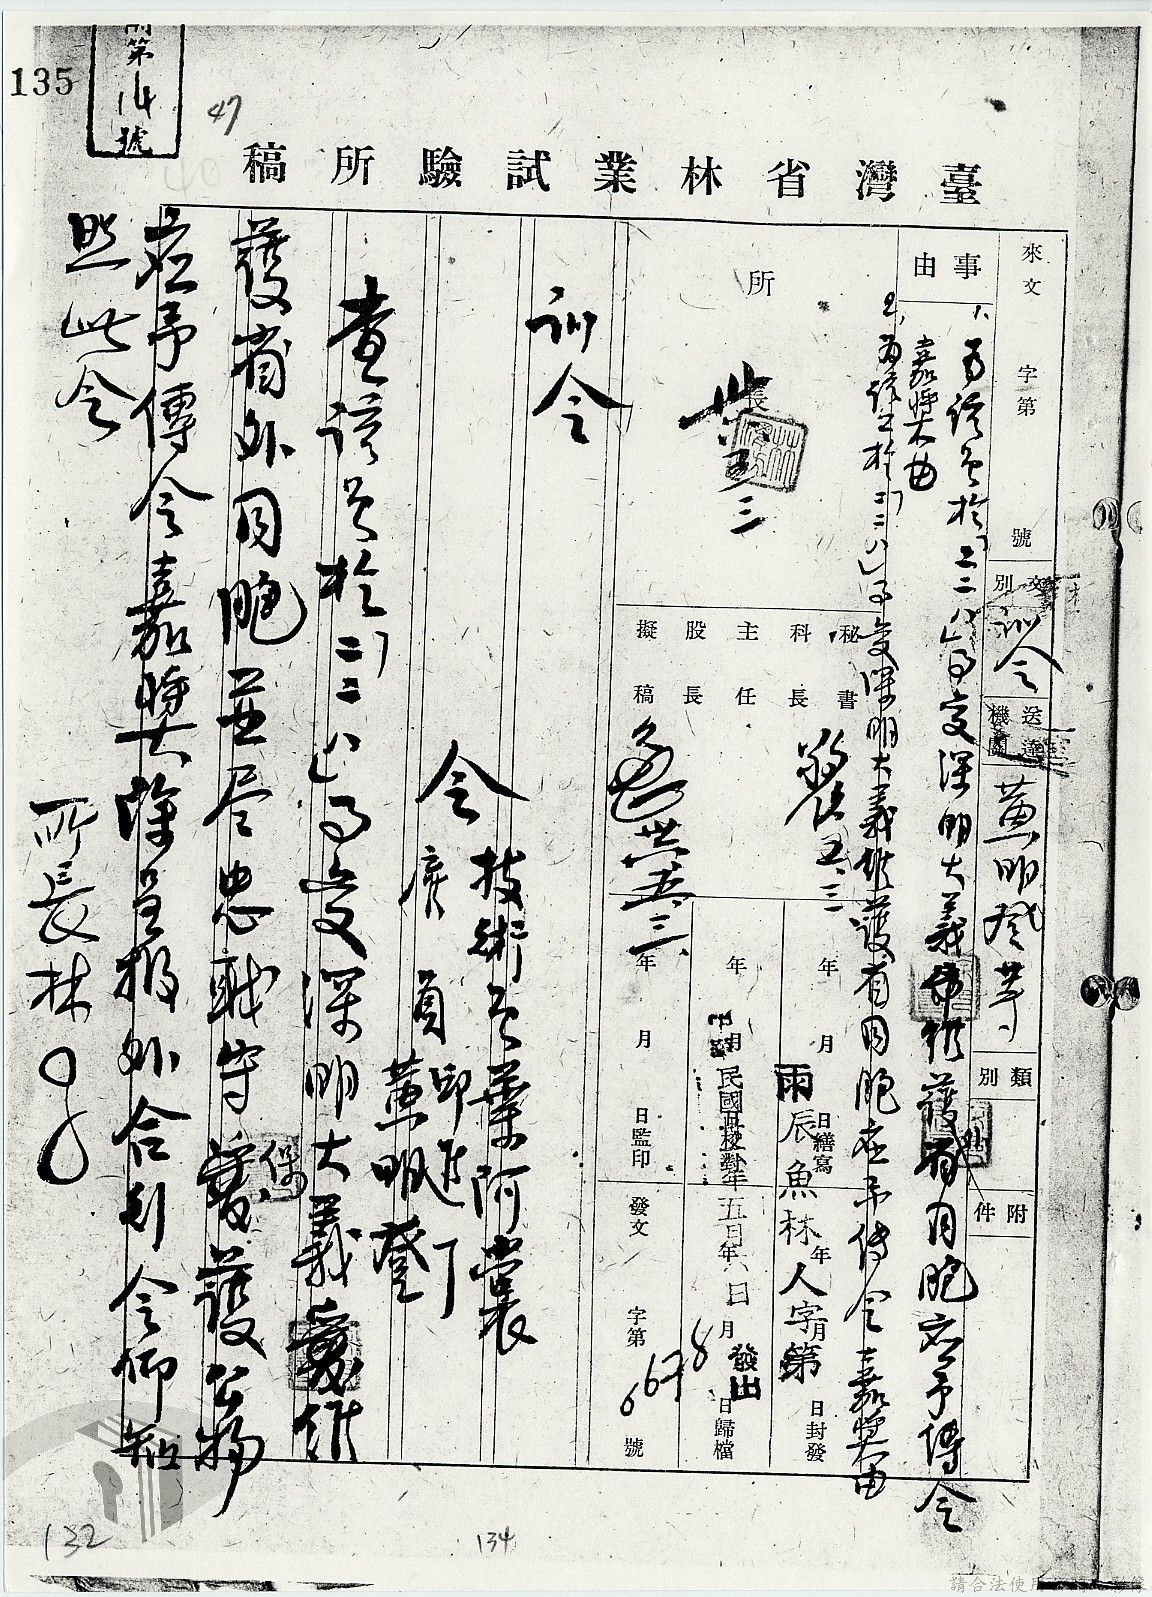 135
第14號
47
臺灣省林業試驗所稿
來文 字第 號
文別 訓令
送達機關 黃明登等
類別
附件
事由
1、為該員於「二二八」事變深明大義維護省外同胞應予傳令
嘉獎由
2、為該員於「二二八」事變深明大義維護省外同胞應予傳令嘉獎由
所長
卅六 五 三
秘書
科長
主任
股長
擬稿
五、三
卅六 五、三
年 月 日繕寫
年 月 日封發
雨辰魚林人字第
年 月 校對
民國卅六年五月六日
8月
發出
日歸檔
年 月 日監印
發文 字第 6678 號
訓令
令 技術員葉阿裳
雇員 邱進丁
黃明登
查該員於「二二八」事變深明大義維
護省外同胞並尽忠職守保護公物
應予傳令嘉獎除呈報外合引令仰知
照此令
所長林
132
134